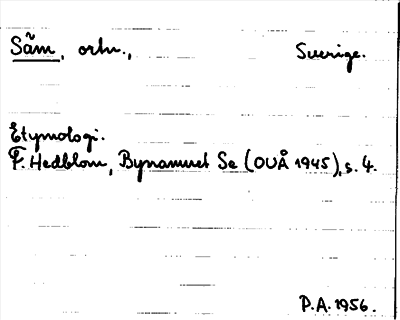 Såm, ortn., Sverige.
Etymologi.
F. Hedblom, Bynamnet Se (OUÅ 1945), s. 4.
P.A. 1956.